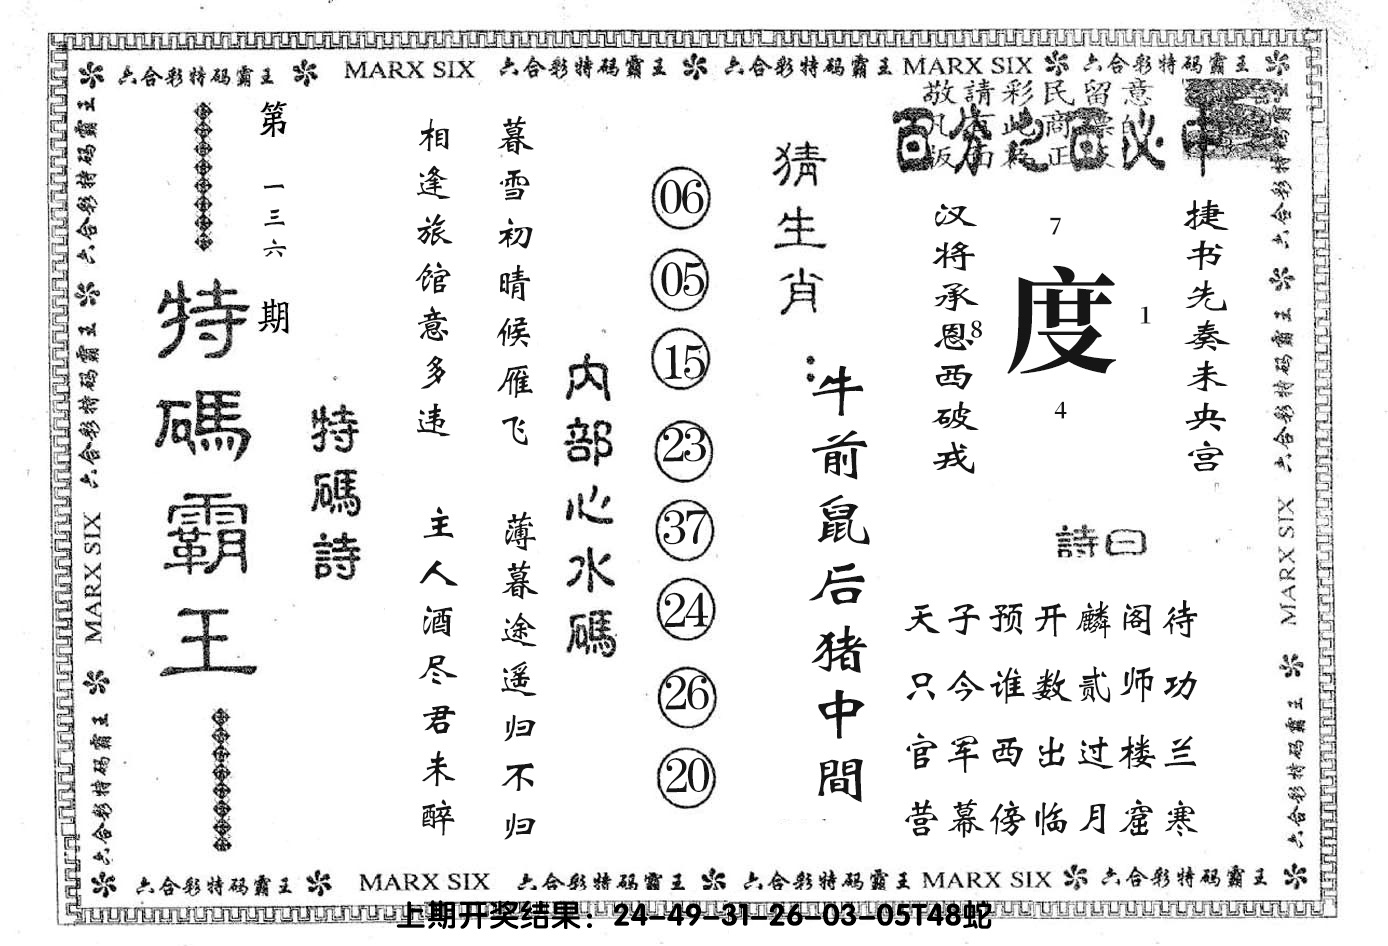 六合彩特码霸王 MARX SIX 六合彩特码霸王 六合彩特码霸王 MARX SIX 六合彩特码霸王
敬請彩民留意
百分之百必中
捷书先奏未央宫
汉将承恩西破戎
7
度
8
1
4
詩曰
天子预开麟阁待
只今谁数贰师功
官军西出过楼兰
营幕傍临月窟寒
猜生肖：牛前鼠后猪中間
06
05
15
23
37
24
26
20
内部心水碼
暮雪初晴候雁飞 薄暮途遥归不归
相逢旅馆意多违 主人酒尽君未醉
特碼詩
第一三六期
特碼霸王
六合彩特码霸王 六合彩特码霸王 MARX SIX 六合彩特码霸王
六合彩特码霸王 六合彩特码霸王 MARX SIX 六合彩特码霸王
六合彩特码霸王 MARX SIX 六合彩特码霸王 六合彩特码霸王 MARX SIX 六合彩特码霸王
上期开奖结果：24-49-31-26-03-05T48蛇